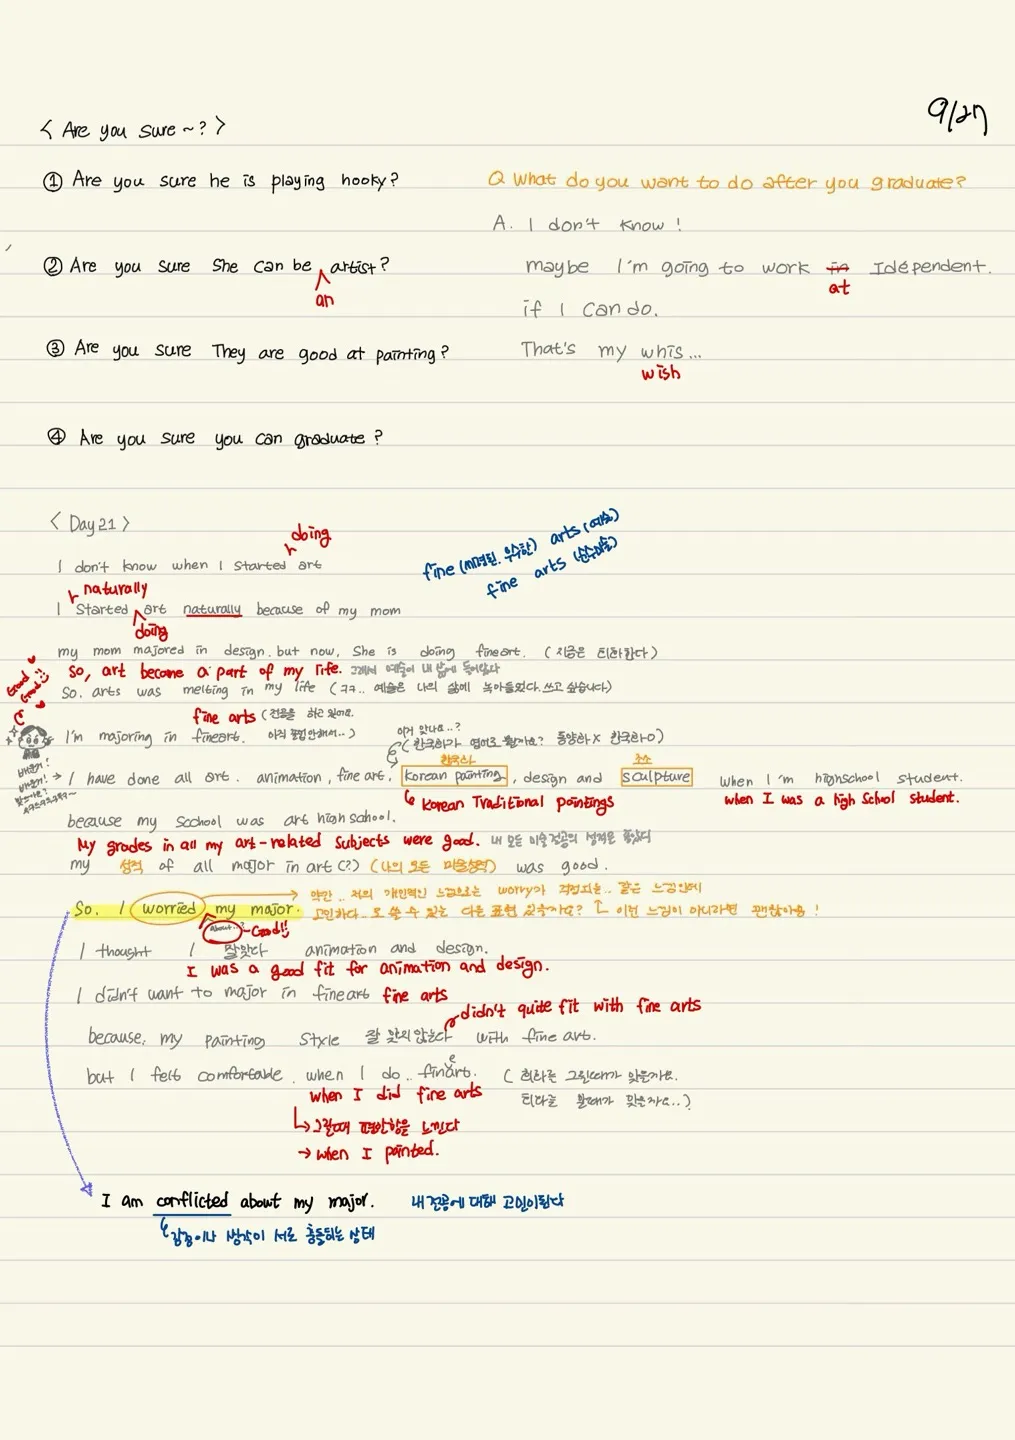 9/27
< Are you sure ~? >
① Are you sure he is playing hooky?
Q What do you want to do after you graduate?
A. I don't know!
② Are you sure she can be artist?
an
maybe I'm going to work in Idépendent.
at
if I can do.
③ Are you sure They are good at painting?
That's my whis...
wish
④ Are you sure you can graduate?
< Day 21 >
doing
fine (세련된, 우수한) arts (예술)
fine arts (순수미술)
I don't know when I started art
naturally
I started art naturally because of my mom
doing
my mom majored in design. but now, she is doing fineart. (지금은 회화한다)
So, art became a part of my life. 그래서 예술이 내 삶에 들어왔다
Good Good!!
So. arts was melting in my life (ㅋㅋ.. 예술은 나의 삶에 녹아들었다. 쓰고 싶습니다)
fine arts (전공을 하고 있어요.
I'm majoring in fineart. 아직 졸업 안해서..)
이거 맞나요..?
(한국화가 영어로 뭘까요? 동양화 X 한국화 O)
한국화
조소
I have done all art. animation, fine art, korean painting, design and sculpture when I'm highschool student.
Korean Traditional paintings
when I was a high School student.
because my scchool was art high school.
My grades in all my art-related subjects were good. 내 모든 미술 전공의 성적은 좋았다
my 성적 of all major in art (?) (나의 모든 미술성적) was good.
약간.. 저의 개인적인 느낌으로는 worry가 걱정되는.. 같은 느낌인데
So. I worried my major. 고민하다.. 로 쓸 수 있는 다른 표현 있을까요? 이런 느낌이 아니라면 괜찮아용!
about..? - Good!!
I thought I 잘맞다 animation and design.
I was a good fit for animation and design.
I didn't want to major in fineart fine arts
didn't quite fit with fine arts
because, my painting style 잘 맞지 않는다 with fine art.
e
but I felt comfortable. when I do.. finart. (회화를 그릴때가 맞는가요.
when I did fine arts
회화를 할때가 맞는가요..)
그릴때 편안함을 느낀다
→ when I painted.
I am conflicted about my major. 내 전공에 대해 고민이된다
감정이나 생각이 서로 충돌되는 상태